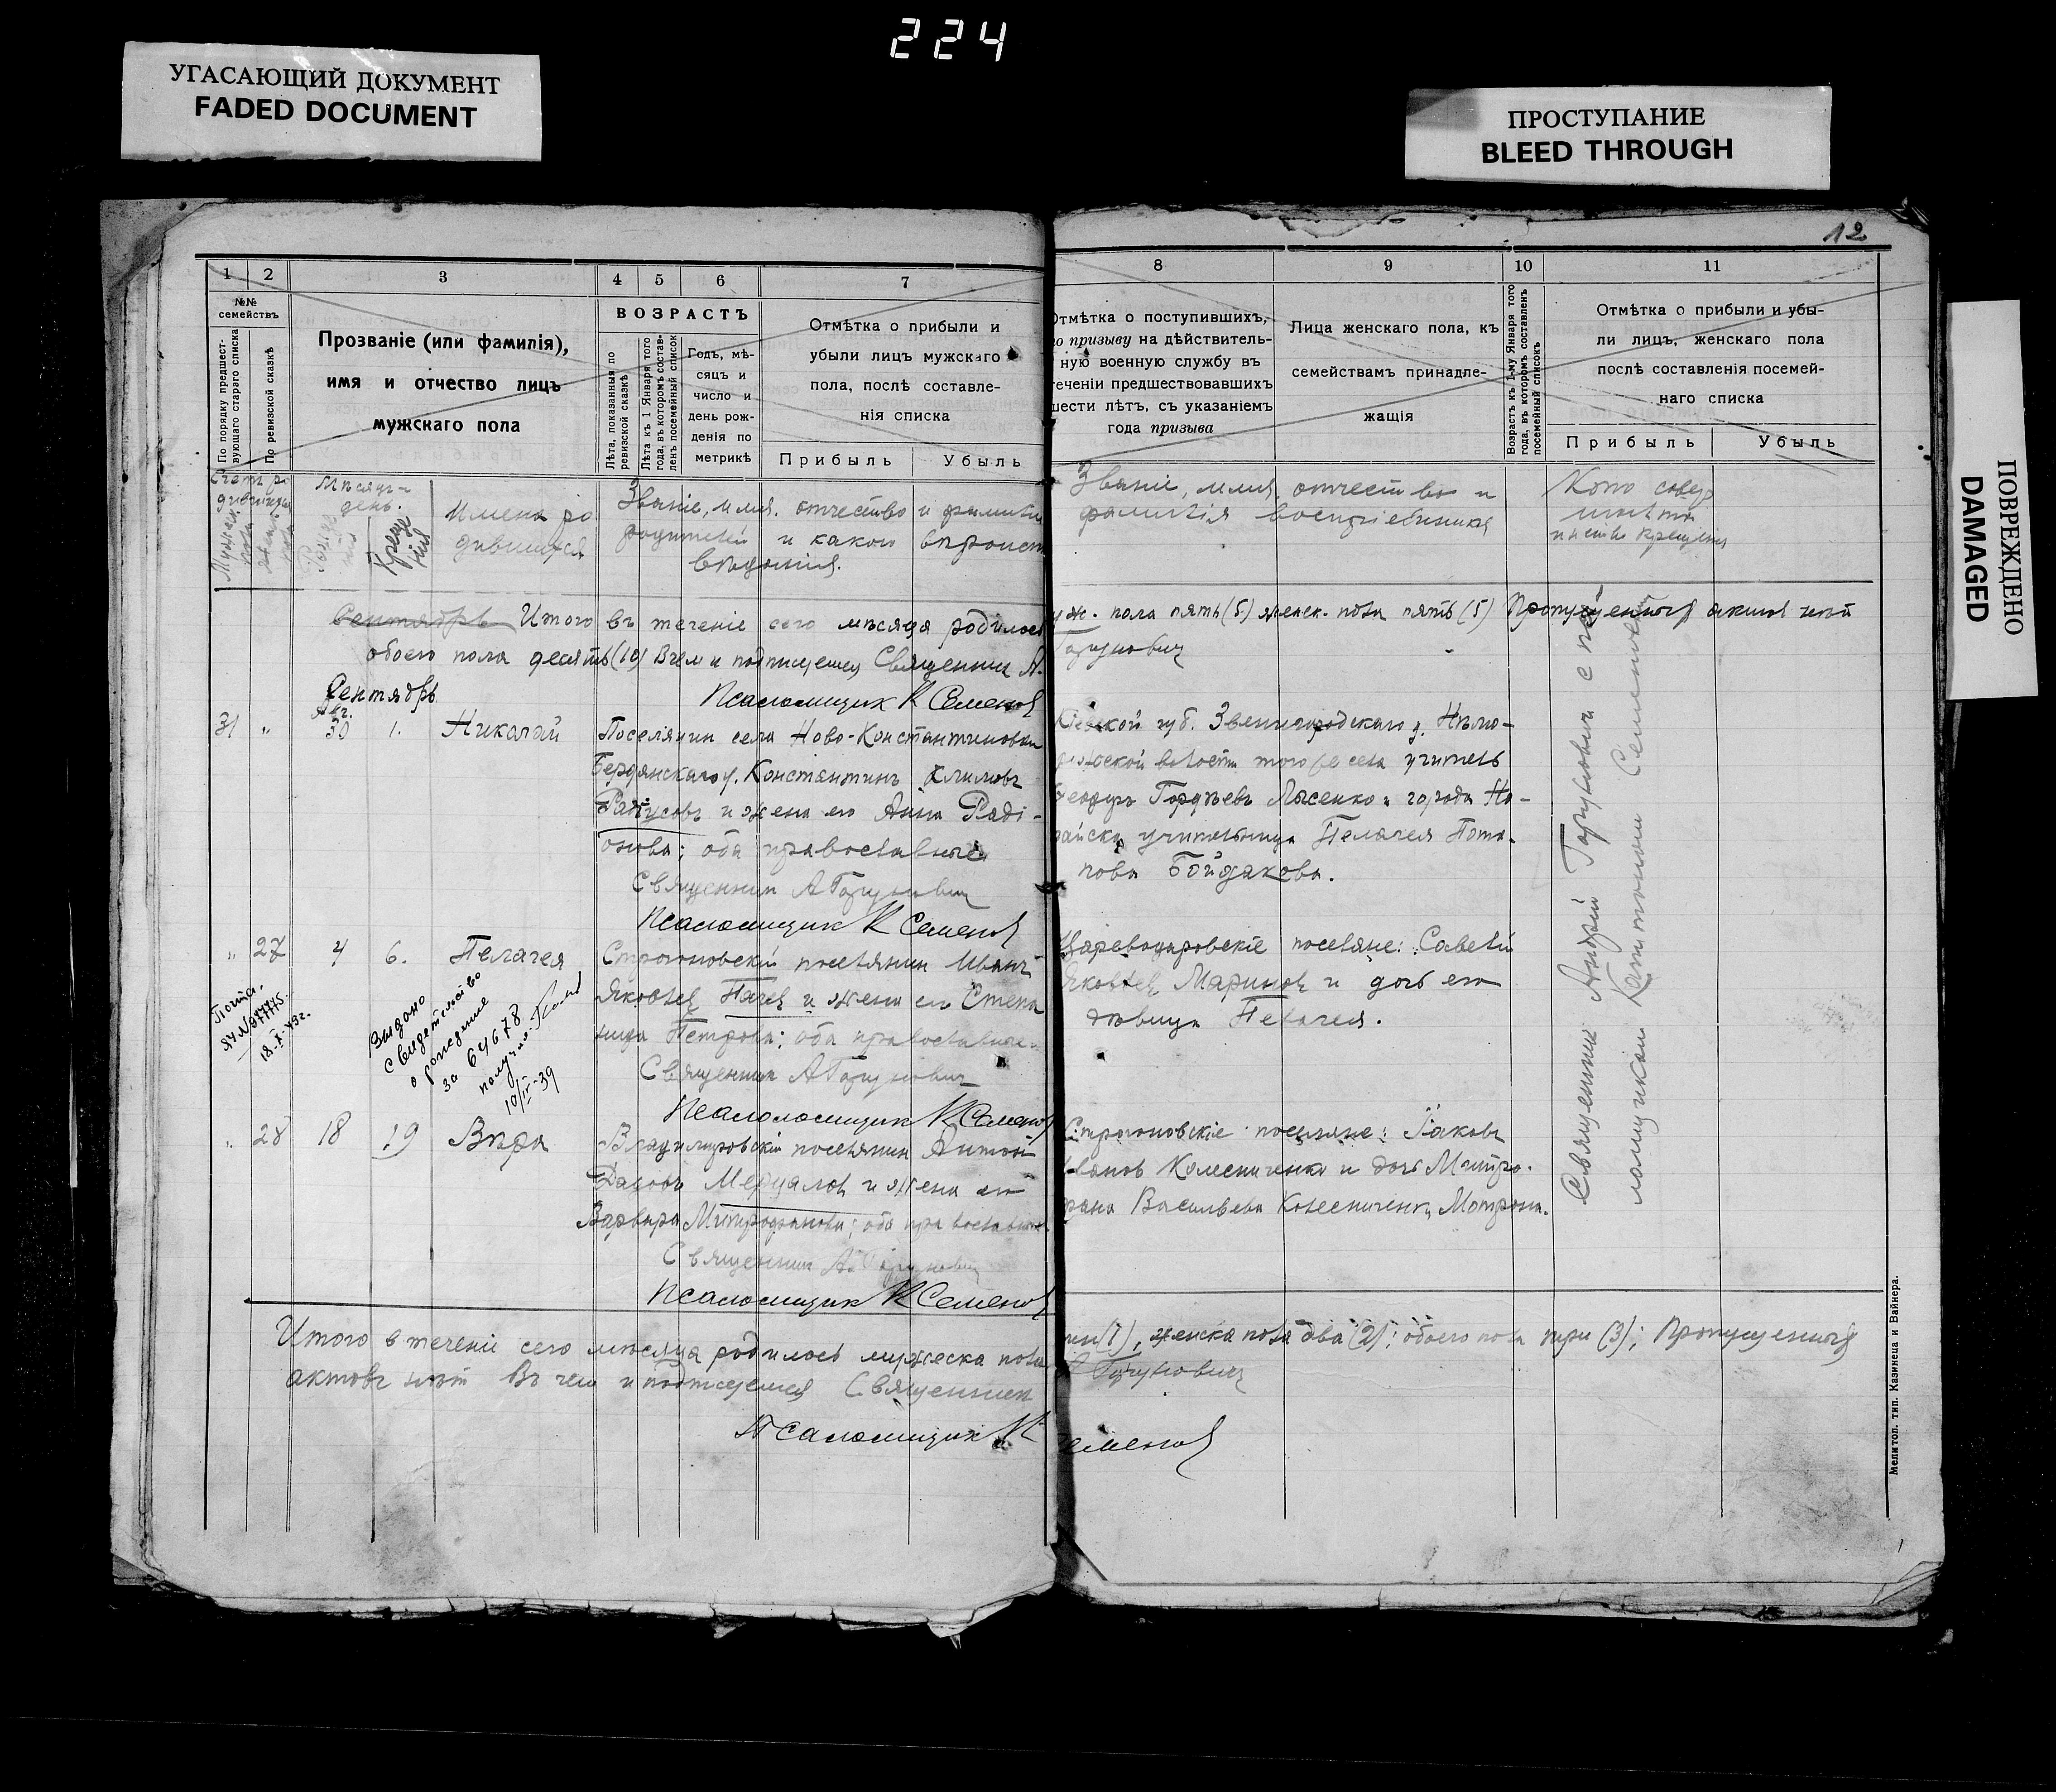 224
УГАСАЮЩИЙ ДОКУМЕНТ
FADED DOCUMENT
ПРОСТУПАНИЕ
BLEED THROUGH
ПОВРЕЖДЕНО
DAMAGED
12
1 2 3 4 5 6 7
№№ семействъ
По порядку предшествующаго стараго списка
По ревизской сказкѣ
Прозваніе (или фамилія),
имя и отчество лицъ
мужскаго пола
ВОЗРАСТЪ
Лѣта, показанныя по ревизской сказкѣ
Лѣта къ 1 Января того года, въ которомъ составленъ посемейный список
Годъ, мѣ-
сяцъ и
число и
день рож-
денія по
метрикѣ
Отмѣтка о прибыли и
убыли лицъ мужскаго
пола, послѣ составле-
нія списка
Прибыль Убыль
8 9 10 11
Отмѣтка о поступившихъ,
по призыву на дѣйствитель-
ную военную службу въ
теченіи предшествовавшихъ
шести лѣтъ, съ указаніемъ
года призыва
Лица женскаго пола, къ
семействамъ принадле-
жащія
Возрастъ къ 1-му Января того года, въ которомъ составленъ посемейный списокъ
Отмѣтка о прибыли и убы-
ли лицъ, женскаго пола
послѣ составленія посемей-
наго списка
Прибыль Убыль
Мѣсяцъ и
день.
Креще
нія
Имена ро
дившихся
Званіе, имя, отчество и фамилія
родителей и какого вѣроиспо
вѣданія.
Званіе, имя, отчество и
фамилія воспріемниковъ
Кто совер
шалъ
таинство крещенія
Сентябрь Итого въ теченіе сего мѣсяца родилось
муж. пола пять (5) женск. пола пять (5) Пропущенныхъ актовъ нѣтъ
обоего пола десять (10) В чем и подписуемся Священник А.
Горунович
Псаломщик К Семенов
Сентябрь
31 " Авг. 30 1. Николай
Поселянин села Ново-Константиновки
Бердянскаго у. Константинъ Климовъ
и жена его Анна Радi-
онова; оба православные
Священник А Горунович
Псаломщик К Семенов
Кіевской губ. Звенигородскаго у.
волости того же села учитель
Георгій Гордѣевъ Лысенко и города Но-
гайска учительница Пелагея Пота-
пова Бойдакова.
" 27 4 6. Пелагея
Строгоновскій поселянин Иванъ
Яковлев Пачев и жена его Степа
нида Петрова; оба православные
Священник А Горунович
Псаломщик К Семенов
поселяне: Савелій
Яковлев Маринов и дочь его
дѣвица Пелагея.
18-X-49г.
Выдано
свидетельство
о рождение
за 64678
получил
10/IV-39
" 28 18 19 Вѣра
Владимировскій поселянин Антон
Мерцалов и жена его
Варвара Митрофанова; оба православные
Священник А. Горунович
Псаломщик К Семенов
Строгоновскіе поселяне: Іаковъ
Иванов Колесниченко и дочь Митро-
фана Васильева Колесниченко, Матрона.
Священник Андрей Горунович с пса
ломщиком Капитоном Семеновым
Итого в теченіе сего мѣсяца родилось мужеска пола
один (1), женска пола два (2); обоего пола три (3); Пропущенных
актовъ нѣт В чем и подписуемся Священник
А Горунович
Псаломщик К Семенов
Мелитоп. тип. Казинеца и Вайнера.